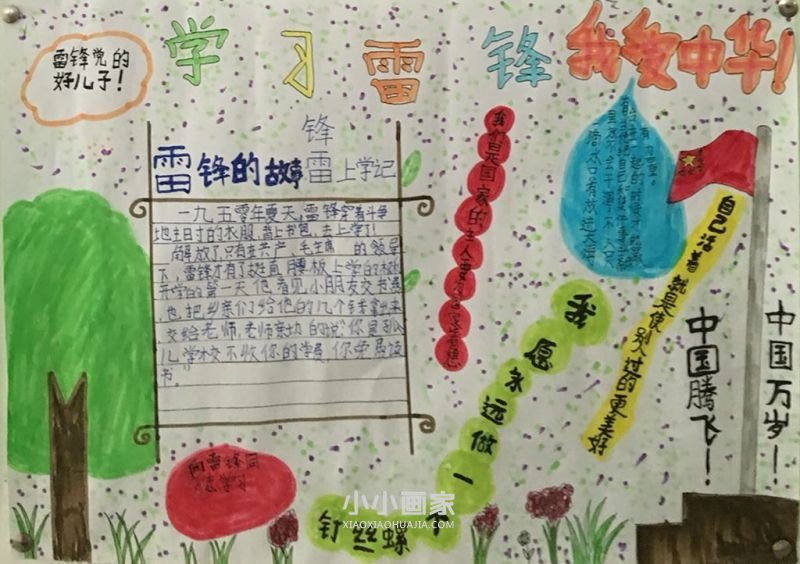 雷锋党的
好儿子!
学习雷锋
我爱中华!
雷锋的故事
锋
雷上学记
一九五零年夏天,雷锋穿着斗争
地主日寸的衣服,背上书包,去上学了!
解放了,只有在共产、毛主席 的领导
下,雷锋才有了挺直腰板上学的权利
开学的第一天,他看见小朋友交书费
也把乡亲们给他的几个钱拿出来
交给老师,老师亲切的说:你是孤
儿,学校不收你的学费,你免费读
书。
我们是国家的主人
自己活着就是使别人过的更美好
我愿永远做一
钉丝螺
向雷锋同
志学习
中国腾飞!
中国万岁!
小小画家
XIAOXIAOHUAJIA.COM